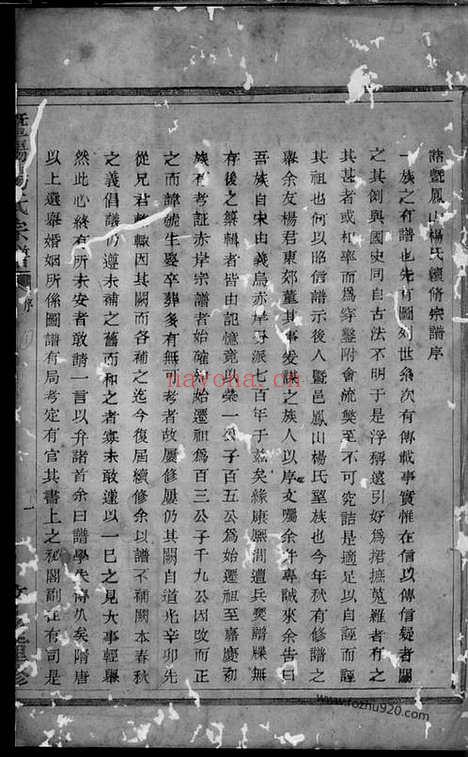 諸暨鳳山楊氏續修宗譜序
一族之有譜也先有圖列世系次有傳載事實惟在信以傳信疑者闕
之其例與國史同自古法不明于是浮稱遠引好為捃摭蒐羅者有之
其甚者或相率而為穿鑿附會流弊至不可究詰是適足以自誣而誣
其祖也何以昭信譜示後人暨邑鳳山楊氏望族也今年秋有修譜之
舉余友楊君東郊董其事爰謀之族人以序文囑余并專誠來余告曰
吾族自宋由義烏赤岸分派七百年于茲矣緣康熙間遭兵燹譜牒無
存後之纂輯者皆由記憶竟以榮一公子百五公為始遷祖至嘉慶初
族有考証赤岸宗譜者始確知始遷祖為百三公子千九公因改而正
之而諱號生娶卒葬多有無可考者故屢修屢仍其闕自道光辛卯先
從兄君 輒因其闕而各補之迄今復屆續修余以譜不補闕本春秋
之義倡議仍遵未補之舊而和之者寡未敢遽以一已之見大事輕舉
然此心終有所未安者敢請一言以弁諸首余曰譜學失傳久矣隋唐
以上選舉婚姻所係圖譜有局考定有官其書上之秘閣副在有司是
暨陽楊氏宗譜
序
一
重修
nayona.cn
www.fozhu920.com